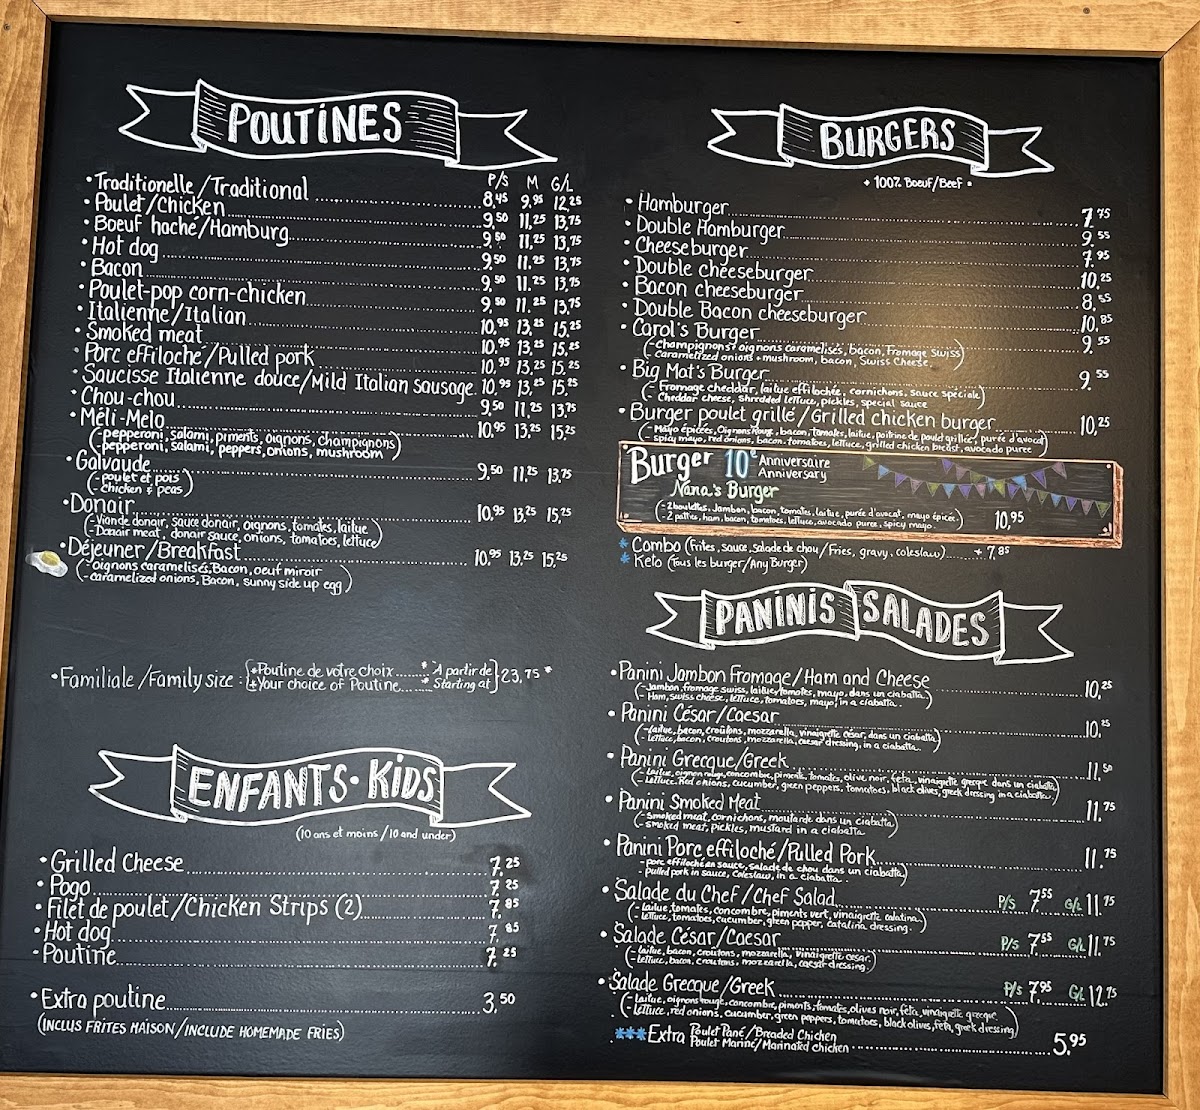 POUTINES
P/S M G/L
• Traditionelle/Traditional 8,45 9,95 12,25
• Poulet/Chicken 9,50 11,25 13,75
• Boeuf haché/Hamburg 9,50 11,25 13,75
• Hot dog 9,50 11,25 13,75
• Bacon 9,50 11,25 13,75
• Poulet-pop corn-chicken 9,50 11,25 13,75
• Italienne/Italian 10,95 13,25 15,25
• Smoked meat 10,95 13,25 15,25
• Porc effiloche/Pulled pork 10,95 13,25 15,25
• Saucisse Italienne douce/Mild Italian sausage 10,95 13,25 15,25
• Chou-chou 9,50 11,25 13,75
• Méli-Melo 10,95 13,25 15,25
(-pepperoni, salami, piments, oignons, champignons)
-pepperoni, salami, peppers, onions, mushroom
• Galvaude 9,50 11,25 13,75
(-poulet et pois)
-chicken & peas
• Donair 10,95 13,25 15,25
(-Viande donair, sauce donair, oignons, tomates, laitue
-Donair meat, donair sauce, onions, tomatoes, lettuce)
• Déjeuner/Breakfast 10,95 13,25 15,25
(-oignons caramelisés, Bacon, oeuf miroir
-caramelized onions, Bacon, sunny side up egg)
• Familiale/Family size: *Poutine de votre choix * À partir de 23,75 *
*Your choice of Poutine * Starting at
ENFANTS • KIDS
(10 ans et moins/10 and under)
• Grilled Cheese 7,25
• Pogo 7,25
• Filet de poulet/Chicken Strips (2) 7,85
• Hot dog 7,85
• Poutine 7,25
• Extra poutine 3,50
(INCLUS FRITES MAISON/INCLUDE HOMEMADE FRIES)
BURGERS
• 100% Boeuf/Beef •
• Hamburger 7,75
• Double Hamburger 9,55
• Cheeseburger 7,95
• Double cheeseburger 10,25
• Bacon cheeseburger 8,55
• Double Bacon cheeseburger 10,85
• Carol's Burger 9,55
(-champignons + oignons caramelisés, bacon, Fromage Swiss)
caramelized onions + mushroom, bacon, Swiss Cheese
• Big Mat's Burger 9,55
(-Fromage cheddar, laitue effilochée, cornichons, sauce spéciale)
-Cheddar cheese, shrdded lettuce, pickles, special sauce
• Burger poulet grillé/Grilled chicken burger 10,25
(-Mayo épicées, Oignons rouge, bacon, tomates, laitue, poitrine de poulet grillée, purée d'avocat)
-spicy mayo, red onions, bacon, tomatoes, lettuce, grilled chicken breast, avocado puree
Burger 10e Anniversaire
Anniversary
Nana's Burger
(-2 boulettes, Jambon, bacon, tomates, laitue, purée d'avocat, mayo épicée.)
-2 patties, ham, bacon, tomatoes, lettuce, avocado puree, spicy mayo. 10,95
* Combo (Frites, sauce, salade de chou/Fries, gravy, coleslaw) + 7,85
* Keto (Tous les burger/Any Burger)
PANINIS SALADES
• Panini Jambon Fromage/Ham and Cheese 10,25
(-Jambon, fromage swiss, laitue, tomates, mayo, dans un ciabatta.)
-Ham, swiss cheese, lettuce, tomatoes, mayo, in a ciabatta.
• Panini César/Caesar 10,25
(-laitue, bacon, croûtons, mozzarella, vinaigrette césar, dans un ciabatta)
-lettuce, bacon, croutons, mozzarella, caesar dressing, in a ciabatta.
• Panini Grecque/Greek 11,50
(-Laitue, oignon rouge, concombre, piments, tomates, olive noir, feta, vinaigrette grecque dans un ciabatta
-Lettuce, Red onions, cucumber, green peppers, tomatoes, black olives, greek dressing in a ciabatta.)
• Panini Smoked Meat 11,75
(-Smoked meat, cornichons, moutarde dans un ciabatta)
-smoked meat, pickles, mustard in a ciabatta
• Panini Porc effiloché/Pulled Pork 11,75
-porc effiloché en sauce, salade de chou dans un ciabatta)
-pulled pork in sauce, coleslaw, in a ciabatta.
• Salade du Chef/Chef Salad P/S 7,55 G/L 11,75
(-laitue, tomates, concombre, piments vert, vinaigrette catalina.
-lettuce, tomatoes, cucumber, green pepper, catalina dressing.)
• Salade César/Caesar P/S 7,55 G/L 11,75
(-laitue, bacon, croutons, mozzarella, vinaigrette cesar.
-lettuce, bacon, croutons, mozzarella, caesar dressing.)
• Salade Grecque/Greek P/S 7,95 G/L 12,75
(-laitue, oignons rouge, concombre, piments, tomates, olives noir, feta, vinaigrette grecque
-lettuce, red onions, cucumber, green peppers, tomatoes, black olives, feta, greek dressing)
*** Extra Poulet Pané/Breaded Chicken
Poulet Mariné/Marinated chicken 5,95